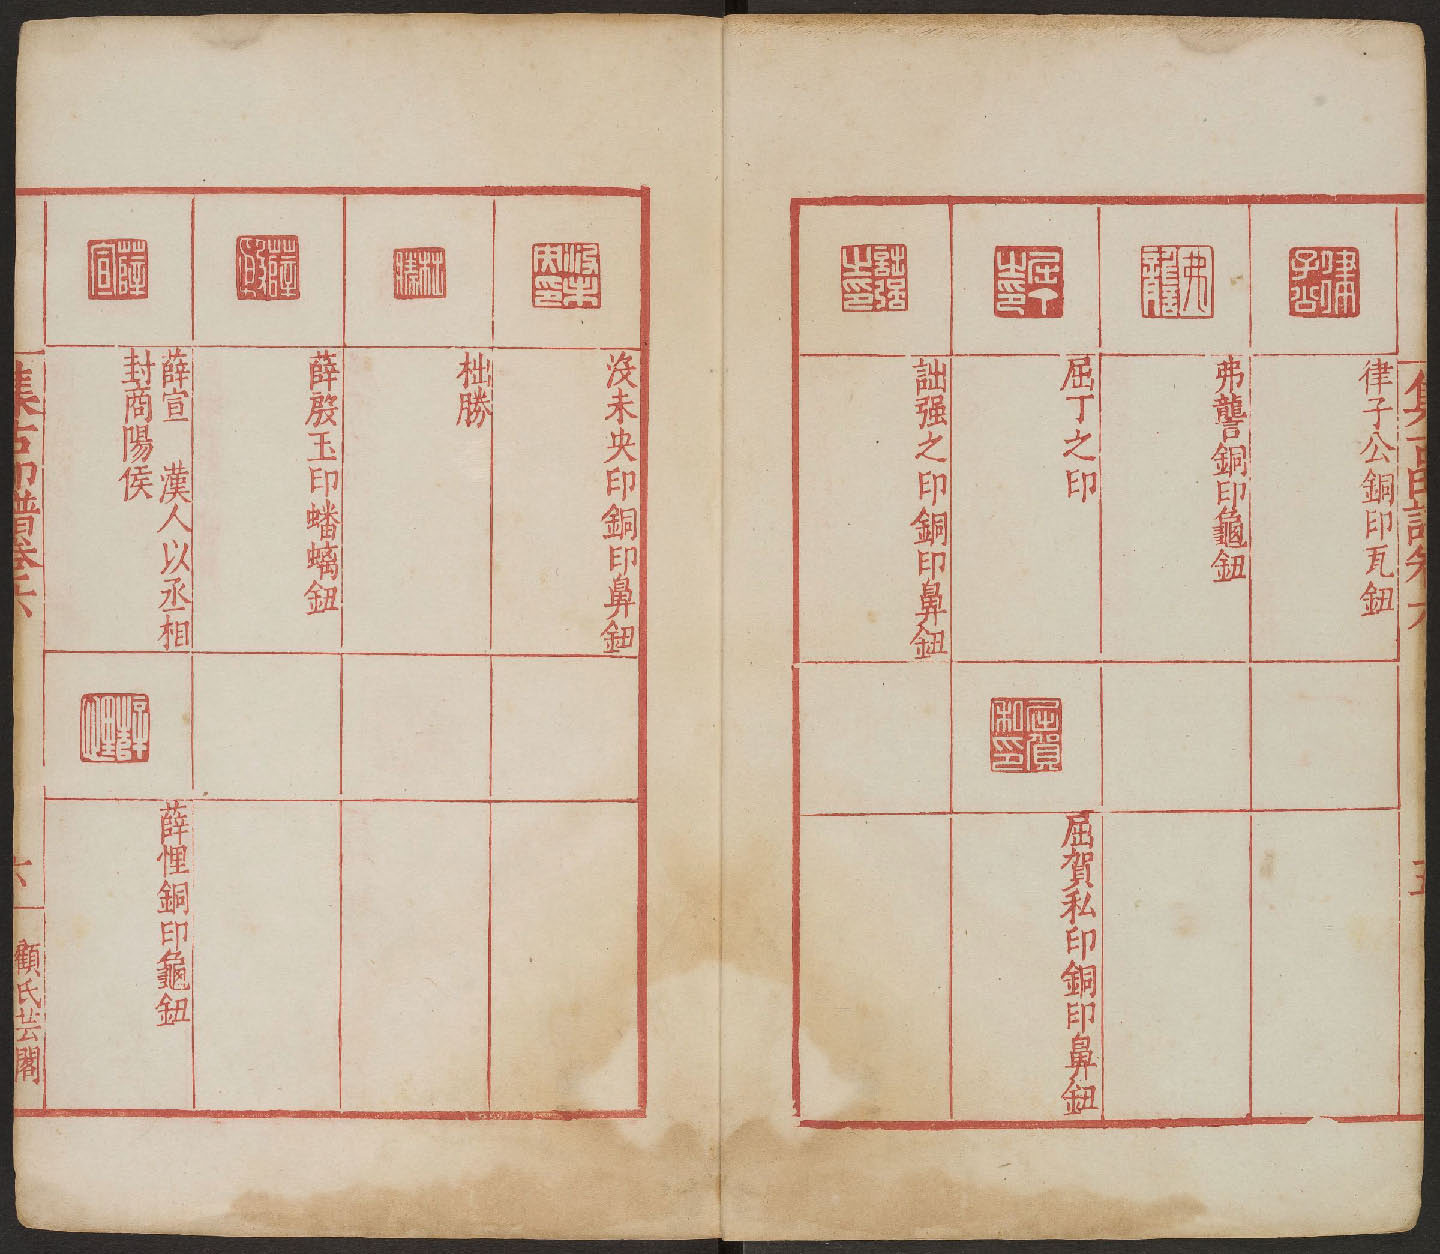 律子公銅印瓦鈕
弗䶬銅印龜鈕
屈丁之印
屈賀私印銅印鼻鈕
詘强之印銅印鼻鈕
沒未央印銅印鼻鈕
柮勝
薛殷玉印蟠螭鈕
薛宣 漢人以丞相
封商陽侯
薛悝銅印龜鈕
集古印譜卷六
六
顧氏芸閣